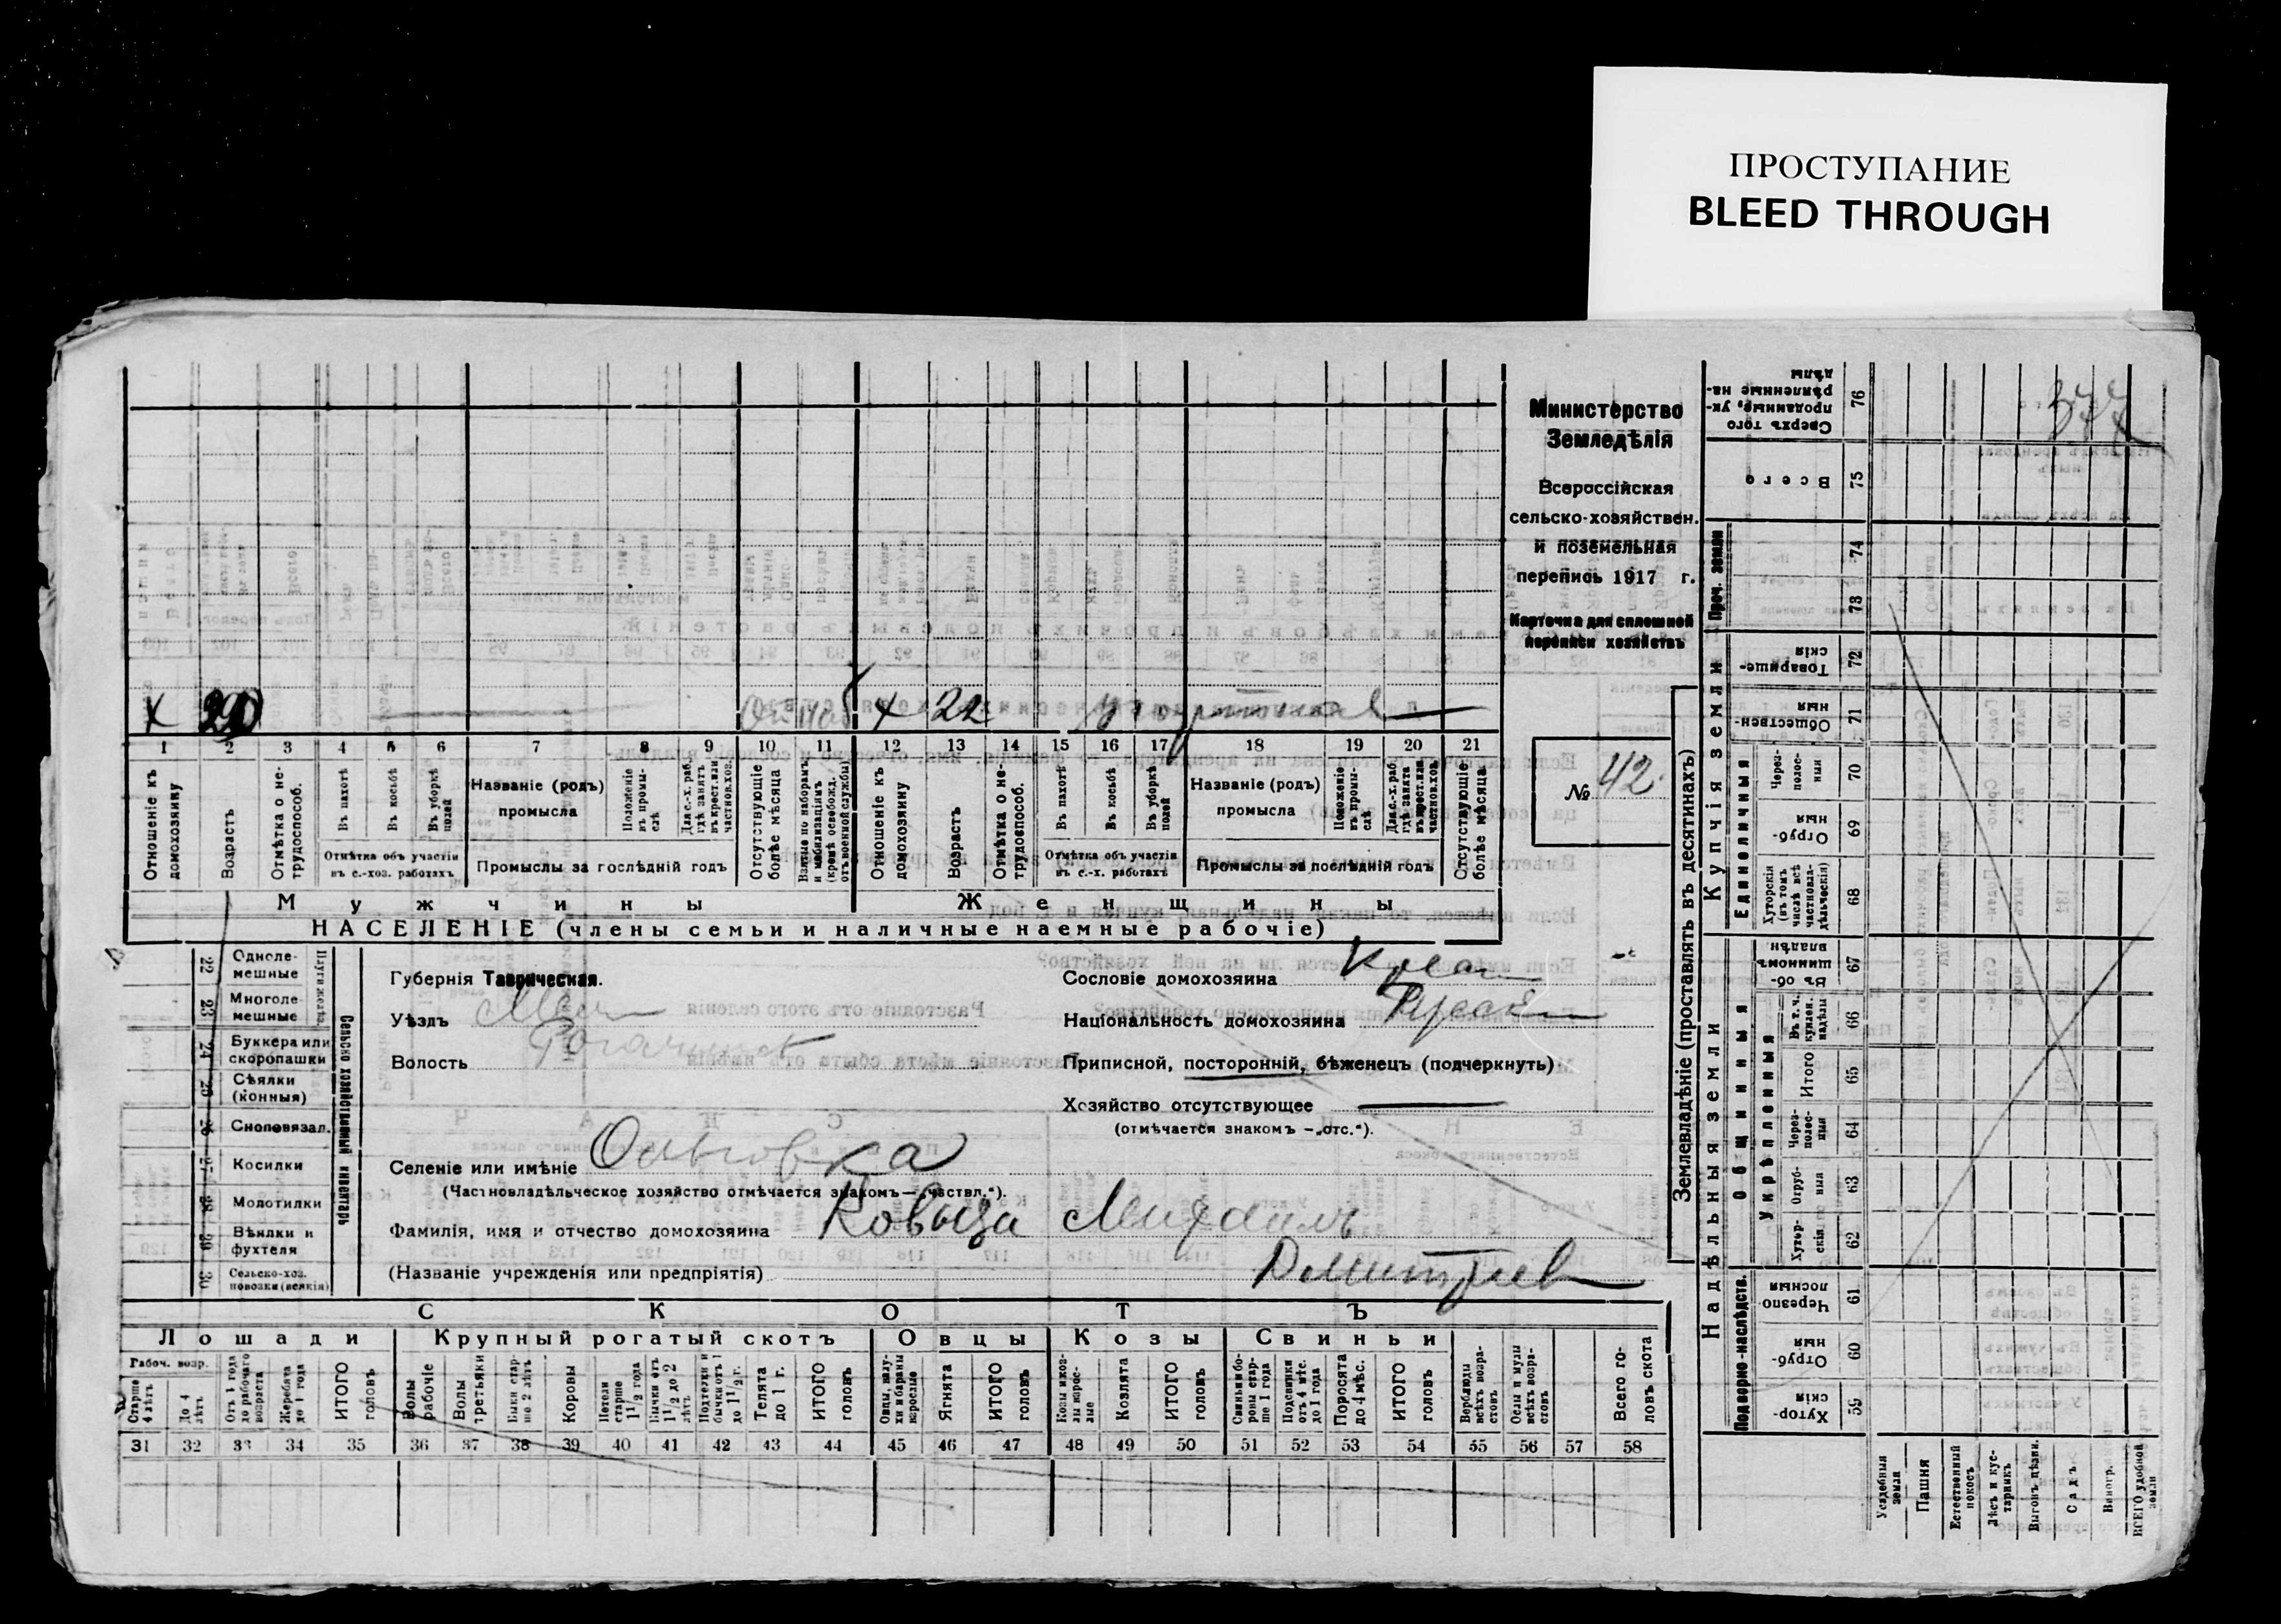 ПРОСТУПАНИЕ
BLEED THROUGH
Министерство
Земледѣлія
Всероссійская
сельско-хозяйствен.
и поземельная
перепись 1917 г.
Карточка для сплошной
переписи хозяйствъ
№ 42
х 22
1 2 3 4 5 6 7 8 9 10 11 12 13 14 15 16 17 18 19 20 21
Отношеніе къ домохозяину
Возрастъ
Отмѣтка о не-трудоспособ.
Въ пахотѣ
Въ косьбѣ
Въ уборкѣ полей
Отмѣтка объ участіи
въ с.-хоз. работахъ
Названіе (родъ)
промысла
Положеніе въ промы-слѣ
Для с.-х. раб. гдѣ занятъ въ крест. или частновл. хоз.
Промыслы за послѣдній годъ
Отсутствующіе болѣе мѣсяца
Взятые по наборамъ и мобилизаціямъ (кромѣ освобожд. отъ военной службы)
Отношеніе къ домохозяину
Возрастъ
Отмѣтка о не-трудоспособ.
Въ пахотѣ
Въ косьбѣ
Въ уборкѣ полей
Отмѣтка объ участіи
въ с.-х. работахъ
Названіе (родъ)
промысла
Положеніе въ промы-слѣ
Для с.-х. раб. гдѣ занята въ крест. или частновл. хоз.
Промыслы за послѣдній годъ
Отсутствующіе болѣе мѣсяца
Мужчины
Женщины
НАСЕЛЕНІЕ (члены семьи и наличные наемные рабочіе)
22 Одноле-мешные
23 Многоле-мешные
24 Буккера или скоропашки
25 Сѣялки (конныя)
26 Сноповязал.
27 Косилки
28 Молотилки
29 Вѣялки и фухтеля
30 Сельско-хоз. повозки (всякія)
Сельско хозяйственный инвентарь
Губернія Таврическая.
Уѣздъ Мел
Волость Рогачинск
Сословіе домохозяина Крест
Національность домохозяина Русск
Приписной, посторонній, бѣженецъ (подчеркнуть)
Хозяйство отсутствующее
(отмѣчается знакомъ — „отс.“).
Селеніе или имѣніе
(Частновладѣльческое хозяйство отмѣчается знакомъ — „частвл.“).
Фамилія, имя и отчество домохозяина Михаилъ
Дмитріев
(Названіе учрежденія или предпріятія)
СКОТЪ
Лошади
Крупный рогатый скотъ
Овцы
Козы
Свиньи
Рабоч. возр.
Старше 4 лѣтъ
До 4 лѣтъ
Отъ 1 года до рабочаго возраста
Жеребята до 1 года
ИТОГО головъ
Волы рабочіе
Волы третьяки
Быки стар-ше 2 лѣтъ
Коровы
Нетели старше 1 1/2 года
Бычки отъ 1 1/2 до 2 лѣтъ
Подтелки и бычки отъ 1 до 1 1/2 г.
Телята до 1 г.
ИТОГО головъ
Овцы, валу-хи и бараны взрослые
Ягнята
ИТОГО головъ
Козы и коз-лы взрос-лые
Козлята
ИТОГО головъ
Свиньи и бо-ровы стар-ше 1 года
Подсвинки отъ 4 мѣс. до 1 года
Поросята до 4 мѣс.
ИТОГО головъ
Верблюды всѣхъ возра-стовъ
Ослы и мулы всѣхъ возра-стовъ
Всего го-ловъ скота
31 32 33 34 35 36 37 38 39 40 41 42 43 44 45 46 47 48 49 50 51 52 53 54 55 56 57 58
Землевладѣніе (проставлять въ десятинахъ)
Надѣльныя земли
Купчія земли
Проч. земли
Подворно-наслѣдств.
Общинныя
Укрѣпленныя
Единоличныя
76 Сверхъ того проданные, ук-рѣпленные на-дѣлы
75 Всего
74
73
72 Товарище-скія
71 Обществен-ныя
70 Через-полос-ныя
69 Отруб-ныя
68 Хуторскія (въ томъ числѣ всѣ частновла-дѣльческія)
67 Въ об-щинномъ владѣн.
66 Въ т. ч. куплен. надѣлы
65 Итого
64 Через-полос-ныя
63 Отруб-ныя
62 Хутор-скія
61 Черезпо-лосныя
60 Отруб-ныя
59 Хутор-скія
Усадебныя земли
Пашня
Естественный покосъ
Лѣсъ и кус-тарникъ
Выгонъ, цѣлин.
Садъ
Виногр.
ВСЕГО удобной земли